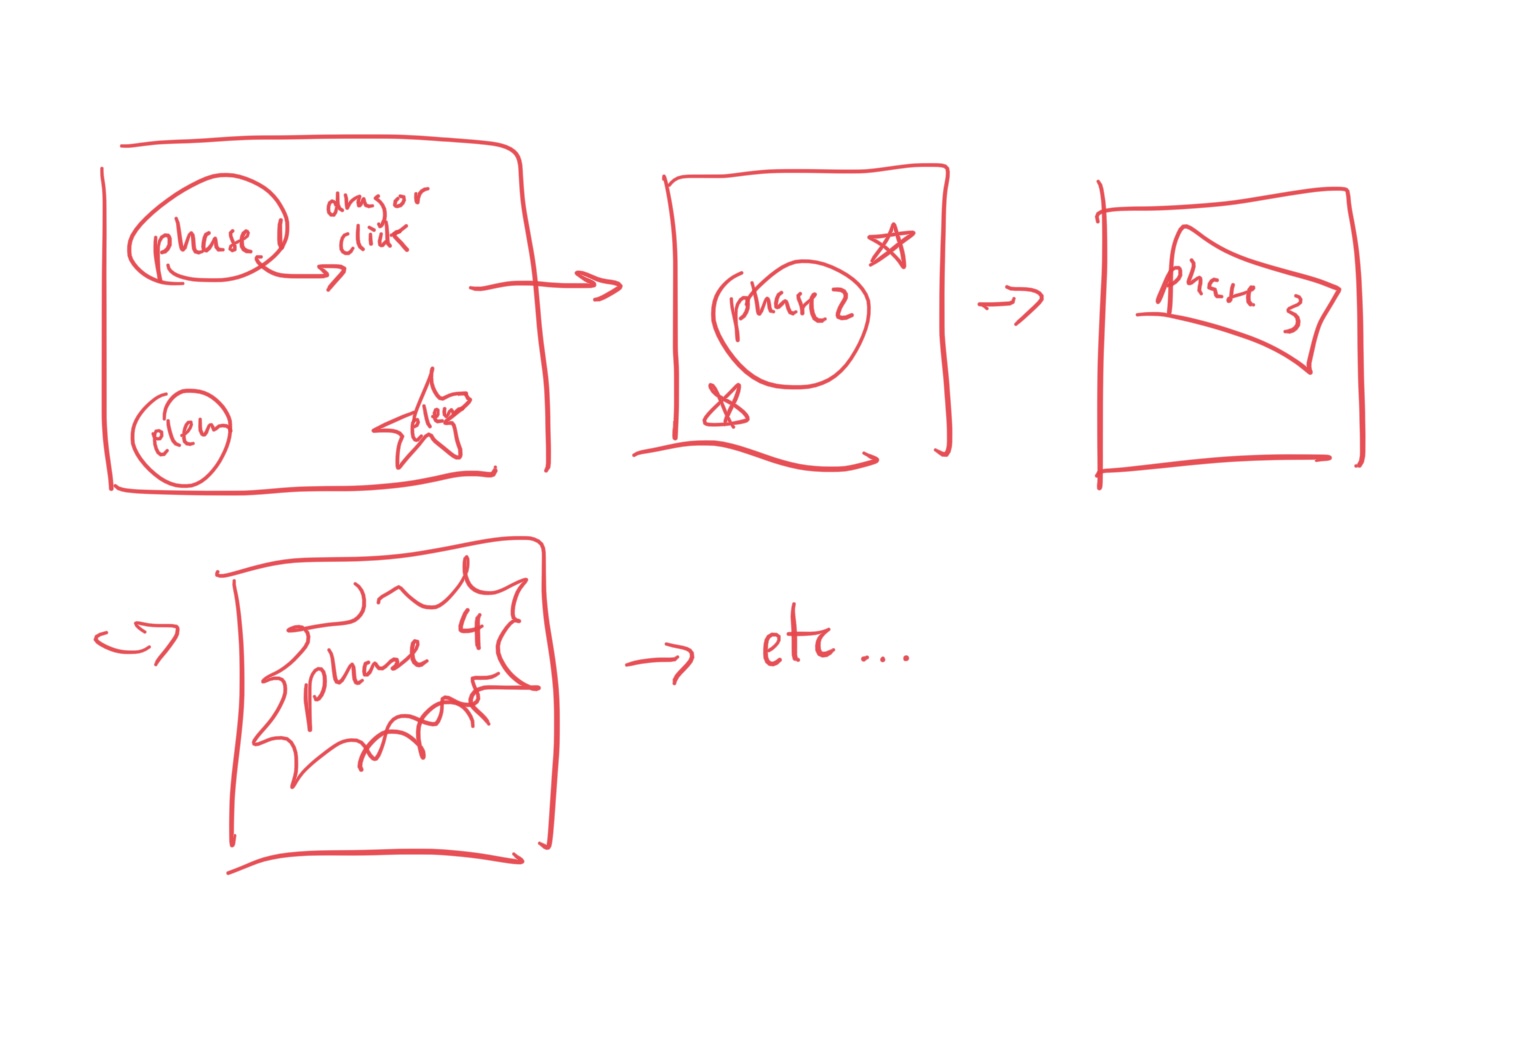 phase 1
drag or
click
elem
elem
phase 2
phase 3
phase 4
etc...